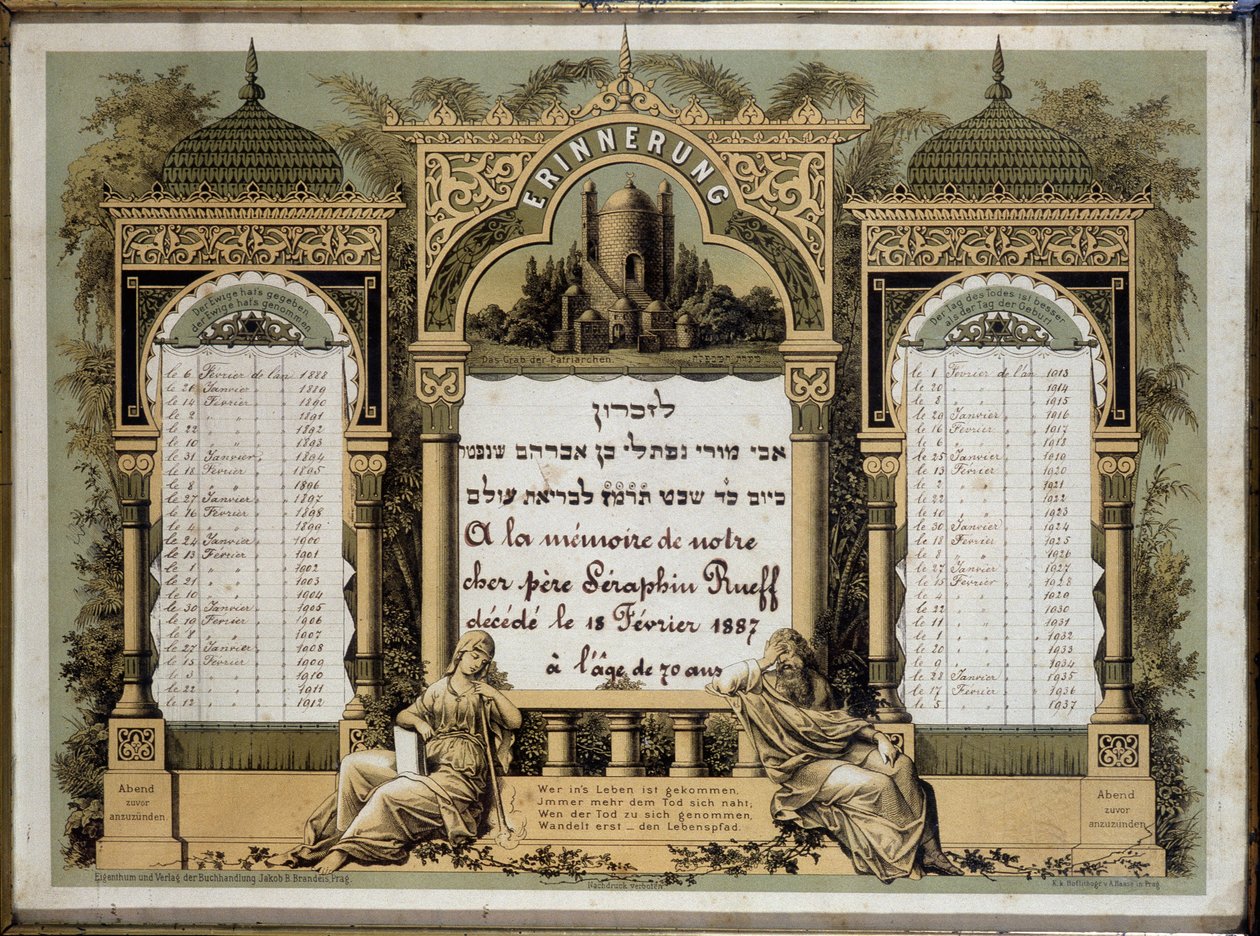 ERINNERUNG
Der Ewige hat's gegeben
der Ewige hat's genommen
le 6 Février de l'an 1888
le 26 Janvier " 1889
le 14 Février " 1890
le 2 " " 1891
le 22 " " 1892
le 10 " " 1893
le 31 Janvier " 1894
le 18 Février " 1895
le 8 " " 1896
le 27 Janvier " 1897
le 16 Février " 1898
le 4 " " 1899
le 24 Janvier " 1900
le 13 Février " 1901
le 1 " " 1902
le 21 " " 1903
le 10 " " 1904
le 30 Janvier " 1905
le 19 Février " 1906
le 8 " " 1907
le 27 Janvier " 1908
le 15 Février " 1909
le 3 " " 1910
le 22 " " 1911
le 12 " " 1912
Abend
zuvor
anzuzünden.
Das Grab der Patriarchen.
מערת המכפלה
לזכרון
אבי מורי נפתלי בן אברהם שנפטר
ביום כד שבט תרמז לבריאת עולם
A la mémoire de notre
cher père Séraphin Rueff
décédé le 18 Février 1887
à l'âge de 70 ans
Wer in's Leben ist gekommen,
Jmmer mehr dem Tod sich naht;
Wen der Tod zu sich genommen,
Wandelt erst _ den Lebenspfad.
Der Tag des Todes ist besser
als der Tag der Geburt
le 1 Février de l'an 1913
le 20 " " 1914
le 8 " " 1915
le 29 Janvier " 1916
le 16 Février " 1917
le 6 " " 1918
le 25 Janvier " 1919
le 13 Février " 1920
le 2 " " 1921
le 22 " " 1922
le 10 " " 1923
le 30 Janvier " 1924
le 18 Février " 1925
le 8 " " 1926
le 27 Janvier " 1927
le 15 Février " 1928
le 4 " " 1929
le 22 " " 1930
le 11 " " 1931
le 1 " " 1932
le 20 " " 1933
le 9 " " 1934
le 28 Janvier " 1935
le 17 Février " 1936
le 5 " " 1937
Abend
zuvor
anzuzünden.
Eigenthum und Verlag der Buchhandlung Jakob B. Brandeis, Prag.
Nachdruck verboten
K.k. Hoflithogr. v. A. Haase in Prag